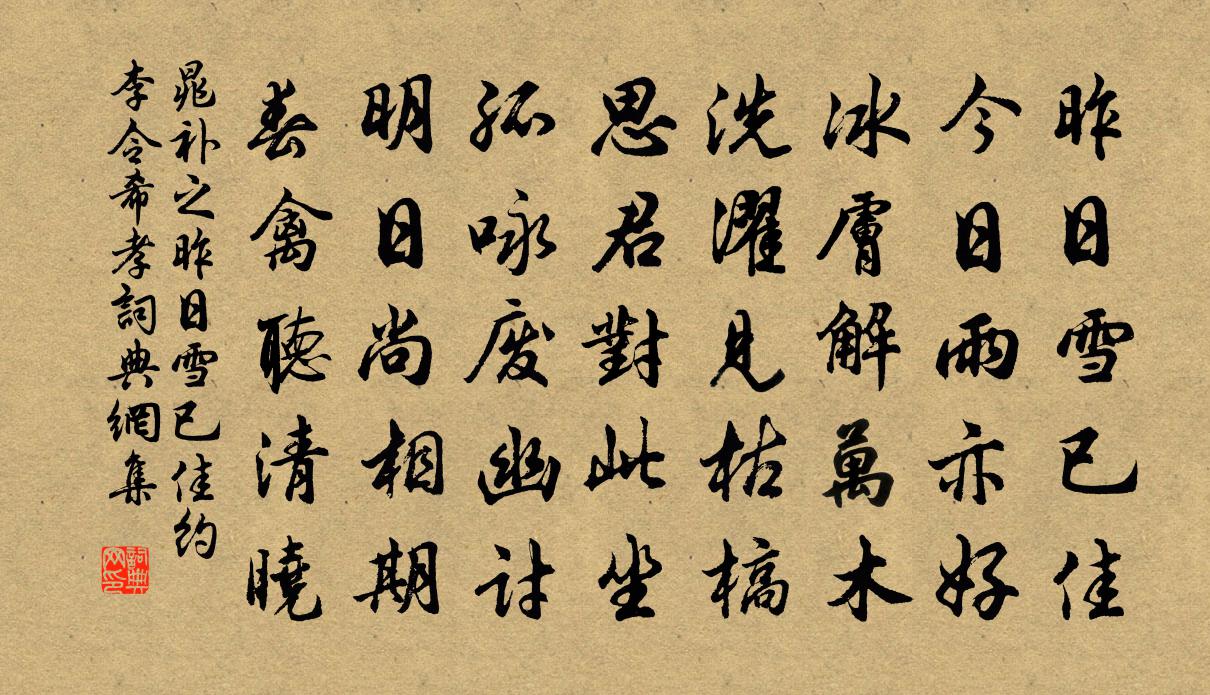 昨日雪已佳
今日雨亦好
冰膚解萬木
洗濯見枯槁
思君對此坐
孤咏废幽討
明日尚相期
春禽聽清曉
晁补之昨日雪已佳约
李令希孝詞典網集
詞典
网印